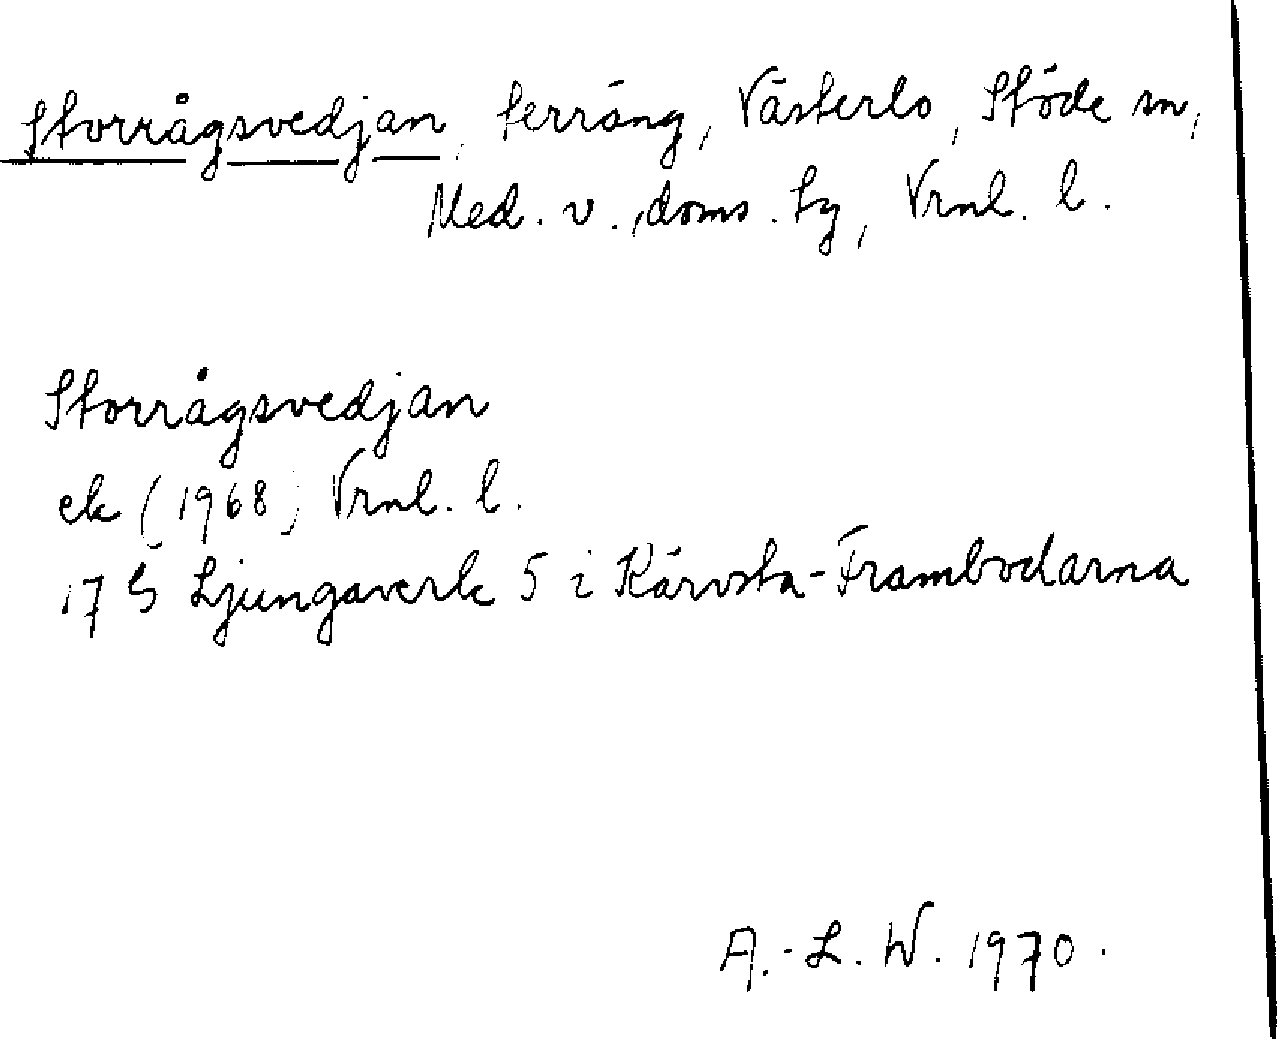 Storrågsvedjan, terräng, Västerlo, Stöde sn,
Med. v. doms. tg, Vrnl. l.
Storrågsvedjan
ek (1968) Vrnl. l.
17 G Ljungaverk 5 i Kärvsta-Frambodarna
A.-L. W. 1970.